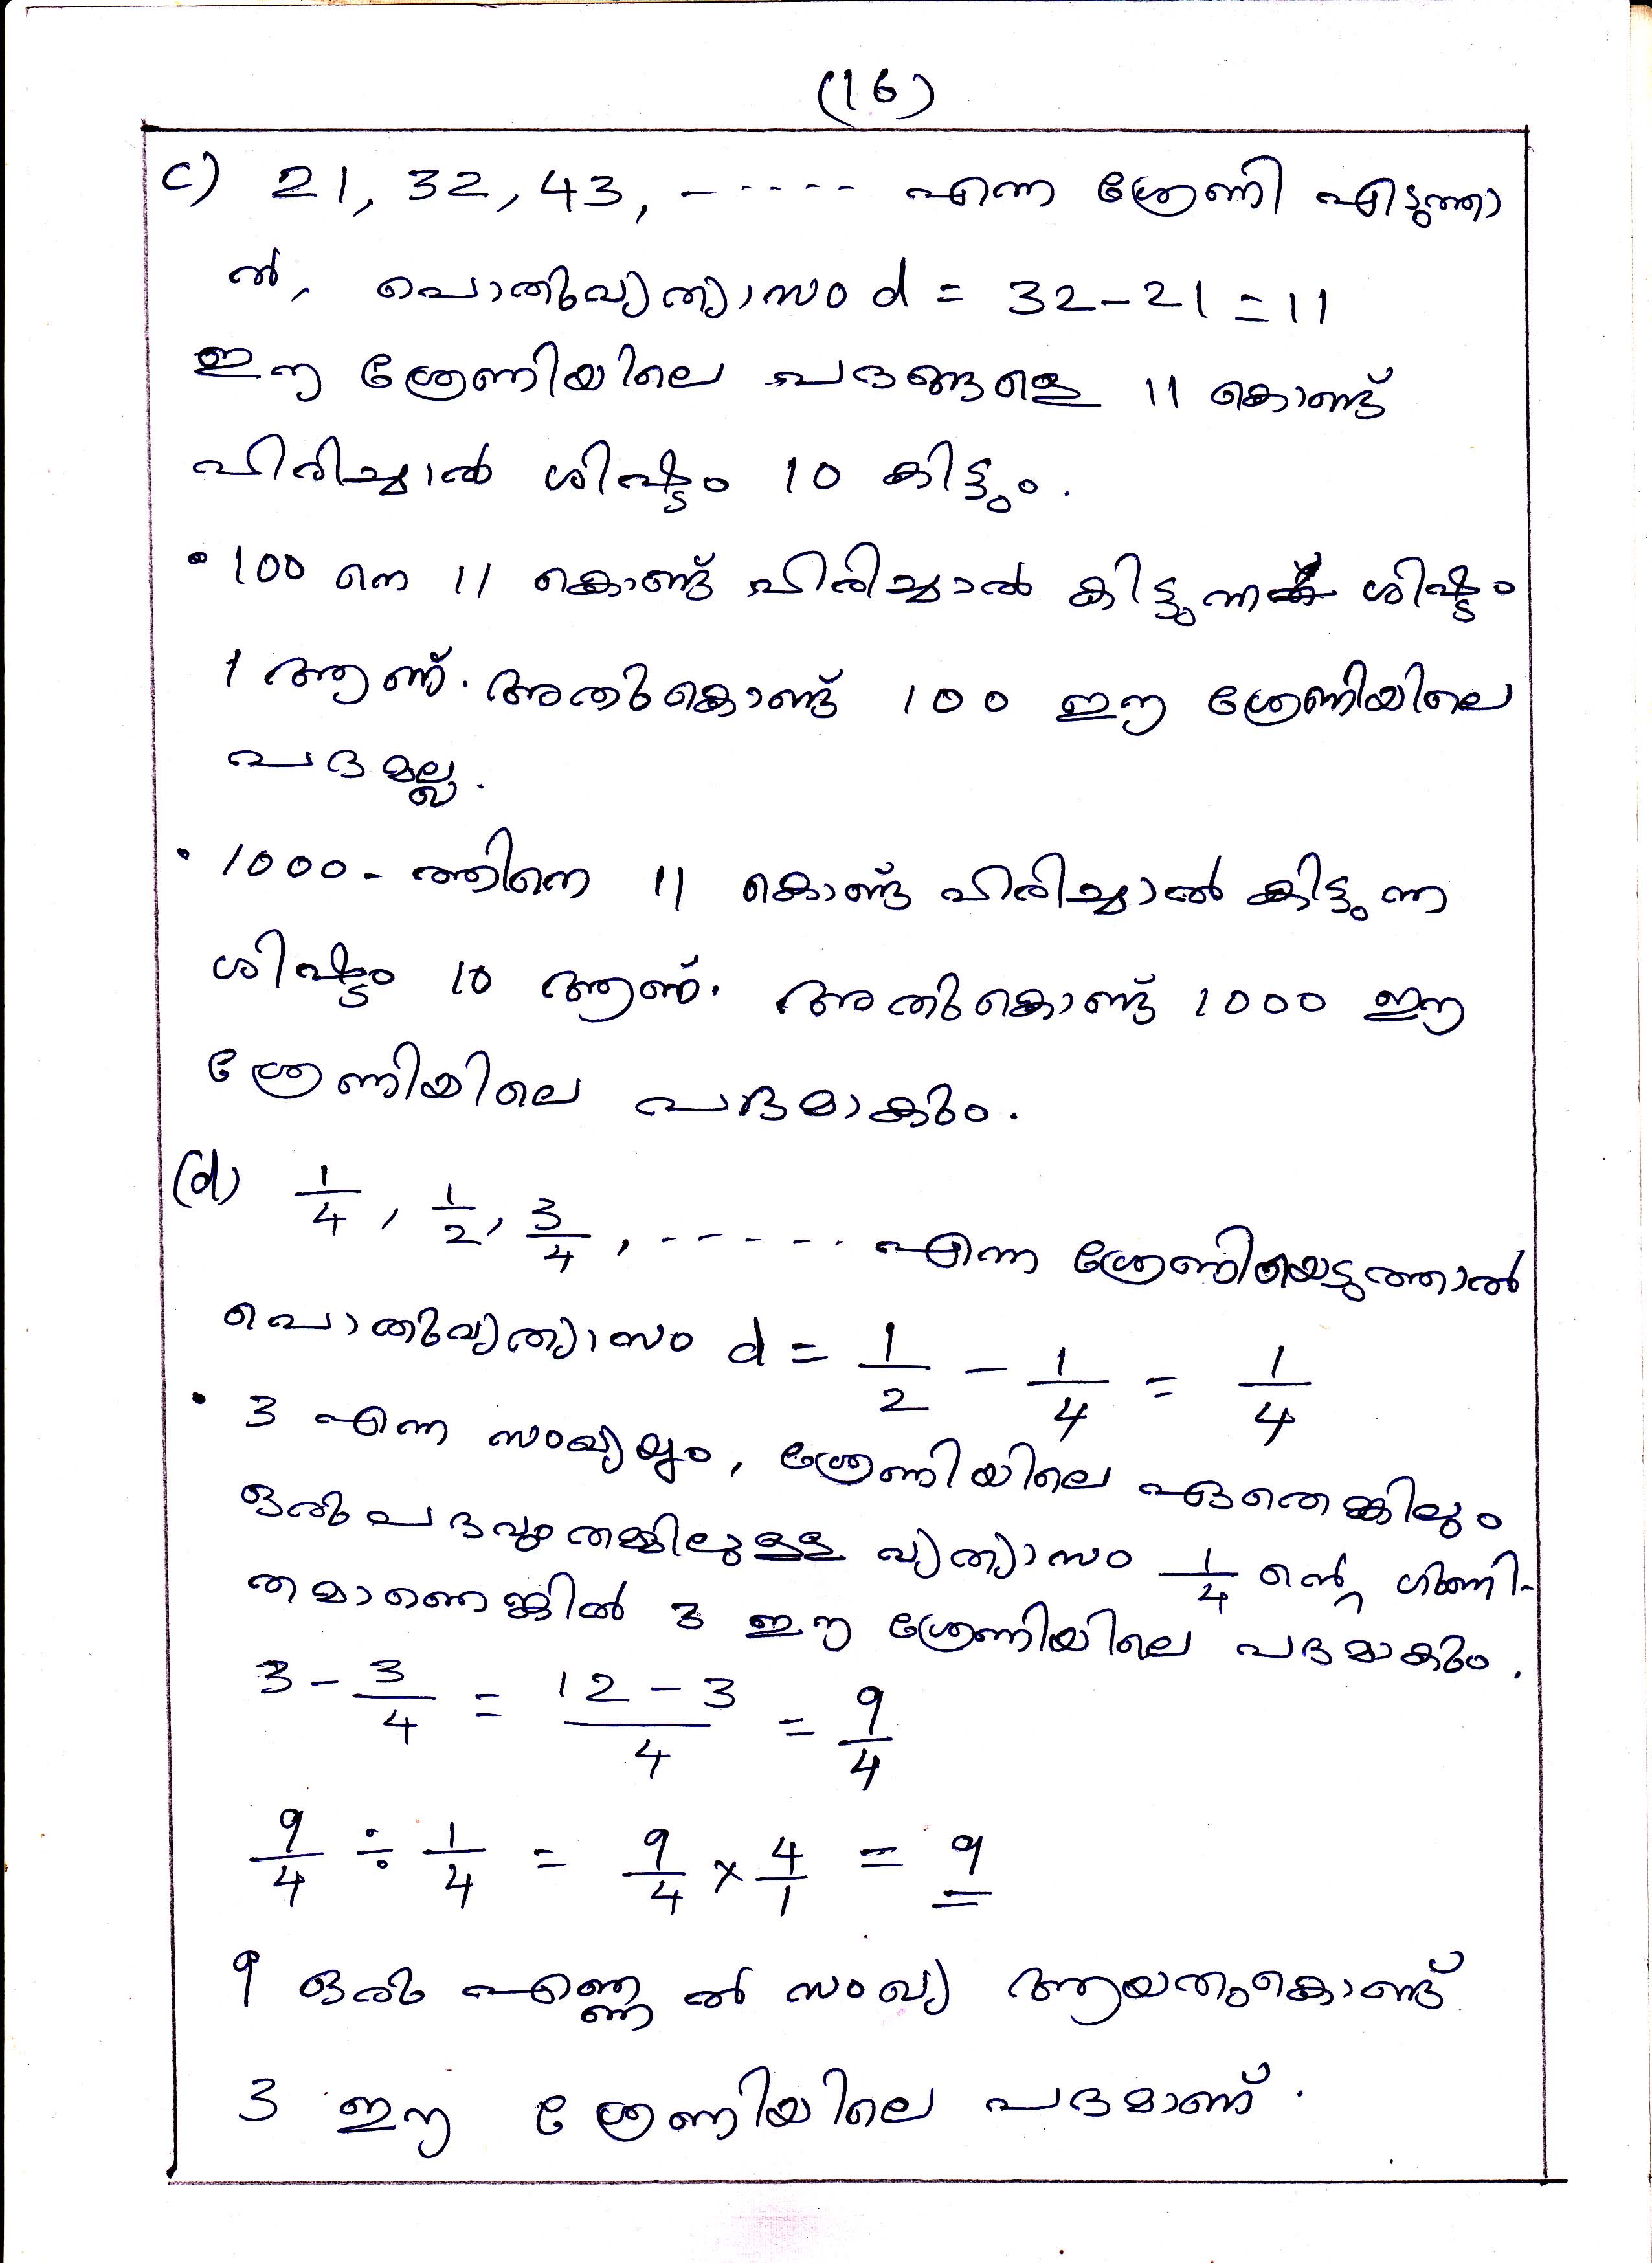 (16)
c) 21, 32, 43, - - - - - എന്ന ശ്രേണി എടുത്താ
ൽ, പൊതുവ്യത്യാസം d = 32 - 21 = 11
ഈ ശ്രേണിയിലെ പദങ്ങളെ 11 കൊണ്ട്
ഹരിച്ചാൽ ശിഷ്ടം 10 കിട്ടും.
• 100 നെ 11 കൊണ്ട് ഹരിച്ചാൽ കിട്ടുന്ന ശിഷ്ടം
1 ആണ്. അതുകൊണ്ട് 100 ഈ ശ്രേണിയിലെ
പദമല്ല.
• 1000 - ത്തിനെ 11 കൊണ്ട് ഹരിച്ചാൽ കിട്ടുന്ന
ശിഷ്ടം 10 ആണ്. അതുകൊണ്ട് 1000 ഈ
ശ്രേണിയിലെ പദമാകും.
(d) 1/4, 1/2, 3/4, - - - - - എന്ന ശ്രേണിയെടുത്താൽ
പൊതുവ്യത്യാസം d = 1/2 - 1/4 = 1/4
• 3 എന്ന സംഖ്യയും, ശ്രേണിയിലെ ഏതെങ്കിലും
ഒരു പദവും തമ്മിലുള്ള വ്യത്യാസം 1/4 ന്റെ ഗുണി-
തമാണെങ്കിൽ 3 ഈ ശ്രേണിയിലെ പദമാകും.
3 - 3/4 = (12 - 3)/4 = 9/4
9/4 ÷ 1/4 = 9/4 × 4/1 = 9
9 ഒരു എണ്ണൽ സംഖ്യ ആയതുകൊണ്ട്
3 ഈ ശ്രേണിയിലെ പദമാണ്.